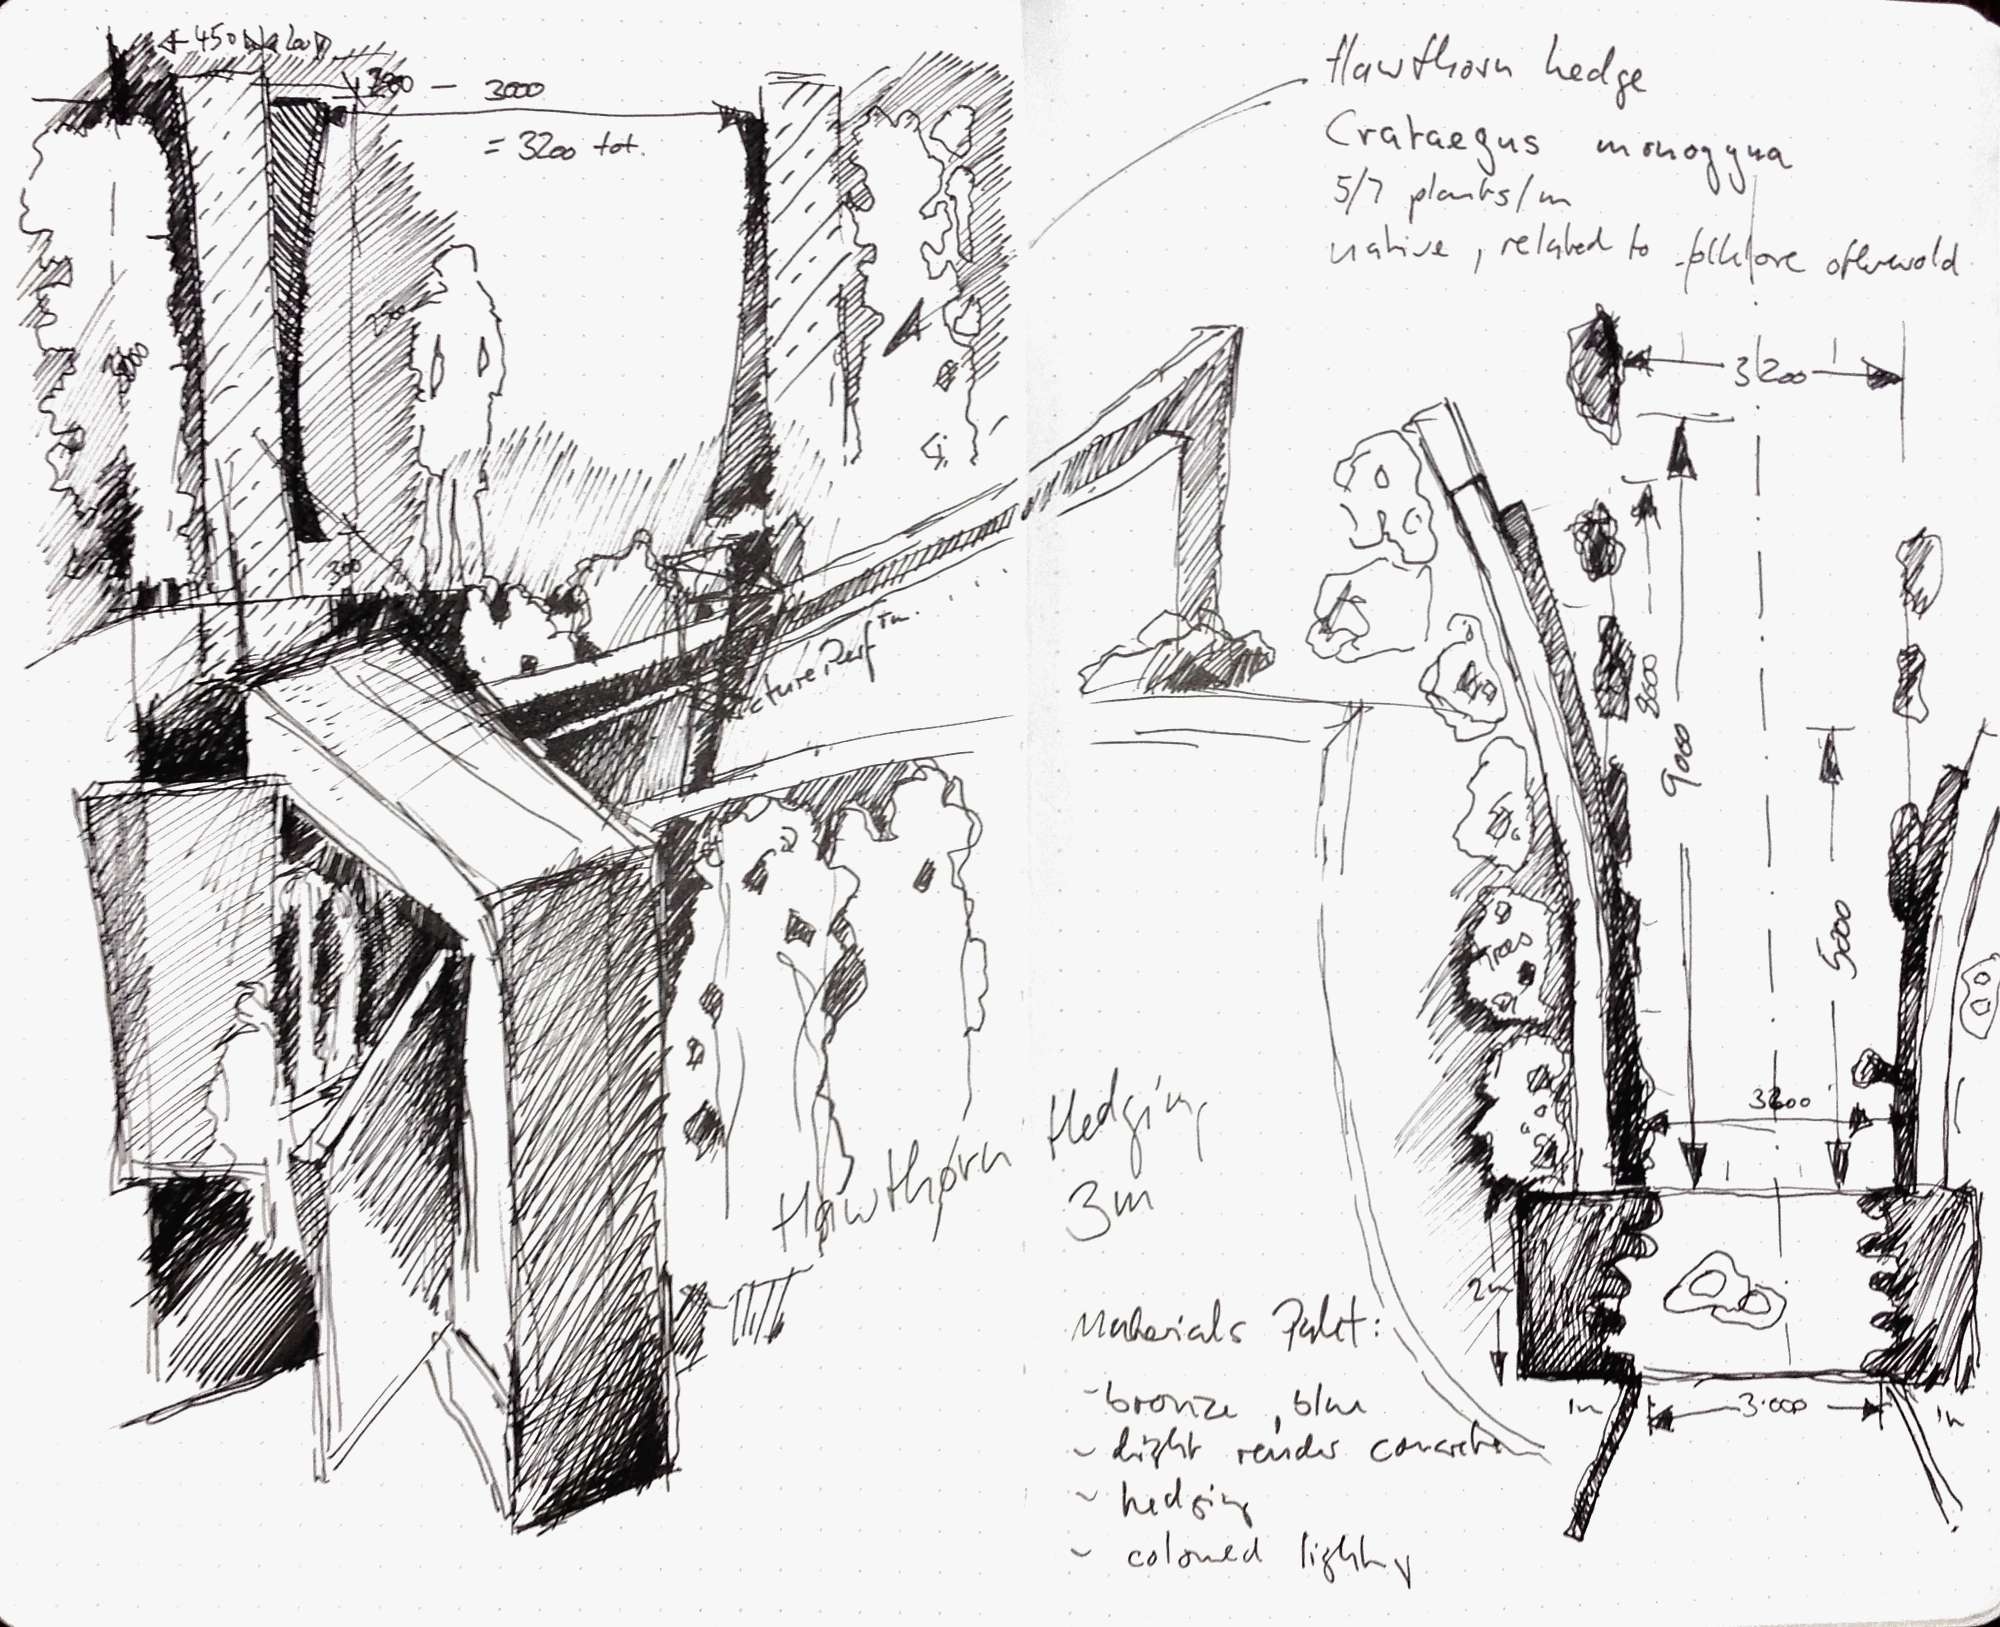 450 200
200 — 3000
= 3200 tot.
300
Hawthorn hedge
Crataegus monogyna
5/7 plants/m
native, related to folklore otherworld
3200
9000
5000
Trees
3200
2m
1m
3.000
1m
Hawthorn Hedging
3m
Materials Palet:
- bronze, blue
~ light render concrete
~ hedging
~ coloured lighting